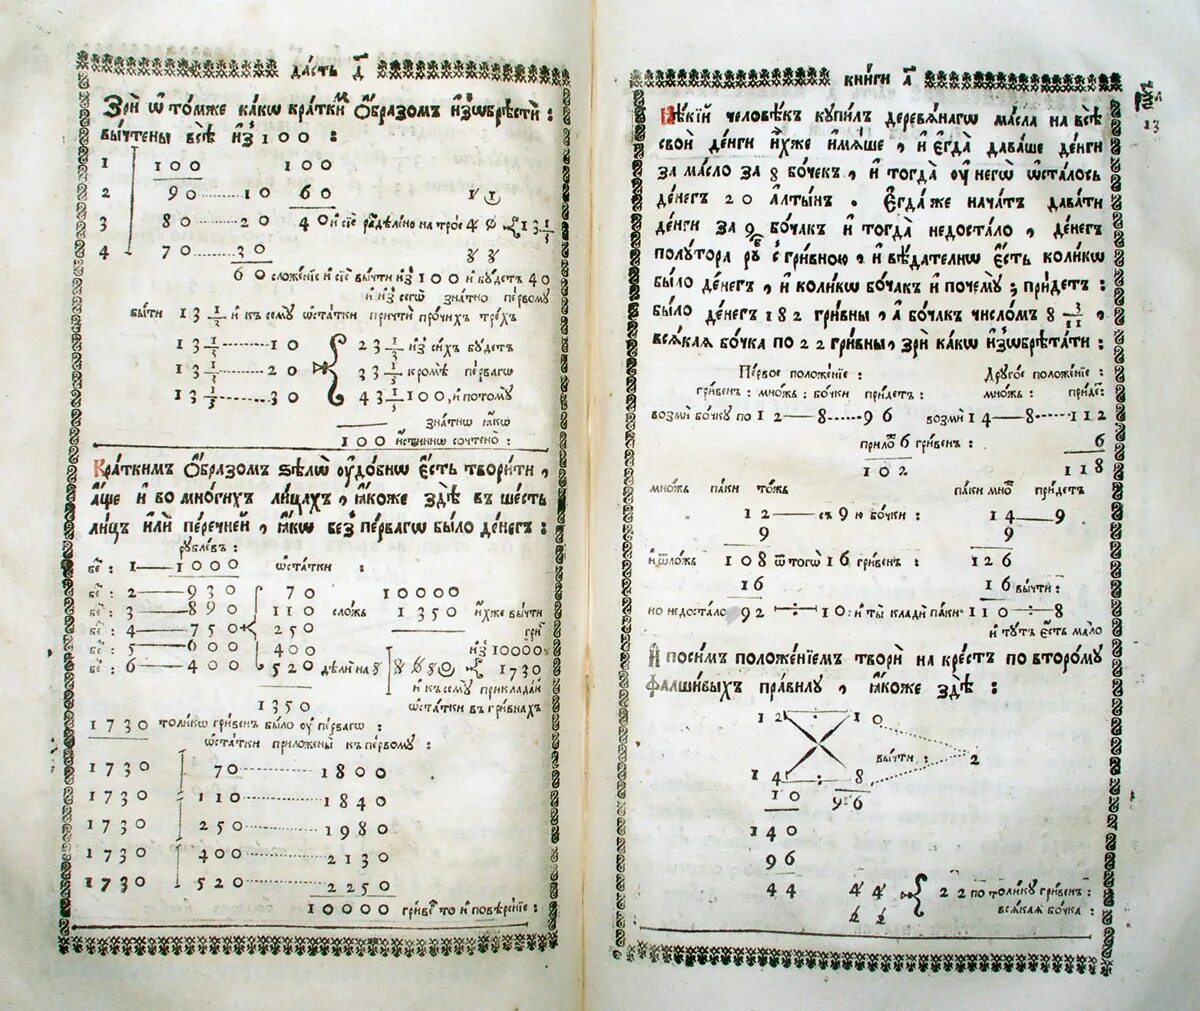 Часть д҃
Зри ѿ томже какѡ кратким ѻбразом изѡбрѣсти :
вычтены всѣ из 100 :
1 100 100
2 90 ........ 10 60
3 80 ........ 20 40 и сїе раздѣлено на трое 4 0 { 13 1/3
4 70 ........ 30
60 сложенїе и сїе вычти из 100 и будетъ 40
и из сегѡ знатно первому
быти 13 1/3 и к сему ѡстатки причти прочихъ трехъ
13 1/3 ........ 10 23 1/3 из сихъ будетъ
13 1/3 ........ 20 33 1/3 кромѣ перваго
13 1/3 ........ 30 43 1/3 100, и потому
знатнѡ ꙗкѡ
100 истиннѡ сочтено :
Краткимъ ѻбразомъ ѕѣлѡ удобнѡ есть творити ,
аще и во многихъ лицахъ , ꙗкоже здѣ въ шесть
лицъ или перечней , ꙗкѡ без перваго было денегъ :
рублевъ :
бе : 1 — 1000 ѡстатки :
бе : 2 — 930 70 10000
бе : 3 — 890 110 сложь 1350 ихже вычти
бе : 4 — 750 250 гри
бе : 5 — 600 400 из 10000
бе : 6 — 400 520 дѣли на 8650 { 1730
и къ сему прикладаи
1350 ѡстатки въ гривнахъ
1730 толикѡ гривенъ было у перваго :
ѡстатки приложены къ первому :
1730 70 ........ 1800
1730 110 ........ 1840
1730 250 ........ 1980
1730 400 ........ 2130
1730 520 ........ 2250
10000 гривенъ то и повѣренїе :
книги а҃
13
Нѣкїй человѣкъ купилъ деревянаго масла на всѣ
свои денги ихже имѧше , и егда даваше денги
за масло за 8 бочекъ , и тогда у него ѡсталось
денегъ 20 алтынъ . Егда же начатъ давати
денги за 9 бочакъ и тогда недостало , денегъ
полутора руб с гривною , и вѣдателнѡ есть коликѡ
было денегъ , и коликѡ бочакъ и почему ; придетъ :
было денегъ 182 гривны , а бочакъ числомъ 8 3/11 ,
всѧкая бочка по 22 гривны , зри какѡ изѡбрѣтати :
Первое положенїе : Другое положенїе :
гривенъ : множь : бочки придетъ : множь : приде :
возми бочку по 12 — 8 ..... 96 возми 14 — 8 ..... 112
прилож 6 гривенъ : 6
102 118
множь паки тожь паки множ придетъ
12 — съ 9 ю бочки : 14 — 9
9 9
и ѿложь 108 ѿ того 16 гривенъ : 126
16 16 вычти :
но недостало 92 ÷ 10 : и ты клади паки 110 ÷ 8
и тутъ есть мало
И посимъ положенїемъ твори на крестъ по второму
фалшивыхъ правилу , ꙗкоже здѣ :
12 10
вычти : 2
14 ÷ 8
10 96
140
96
44 44 22 по толику гривенъ :
2 2 всѧкая бочка :